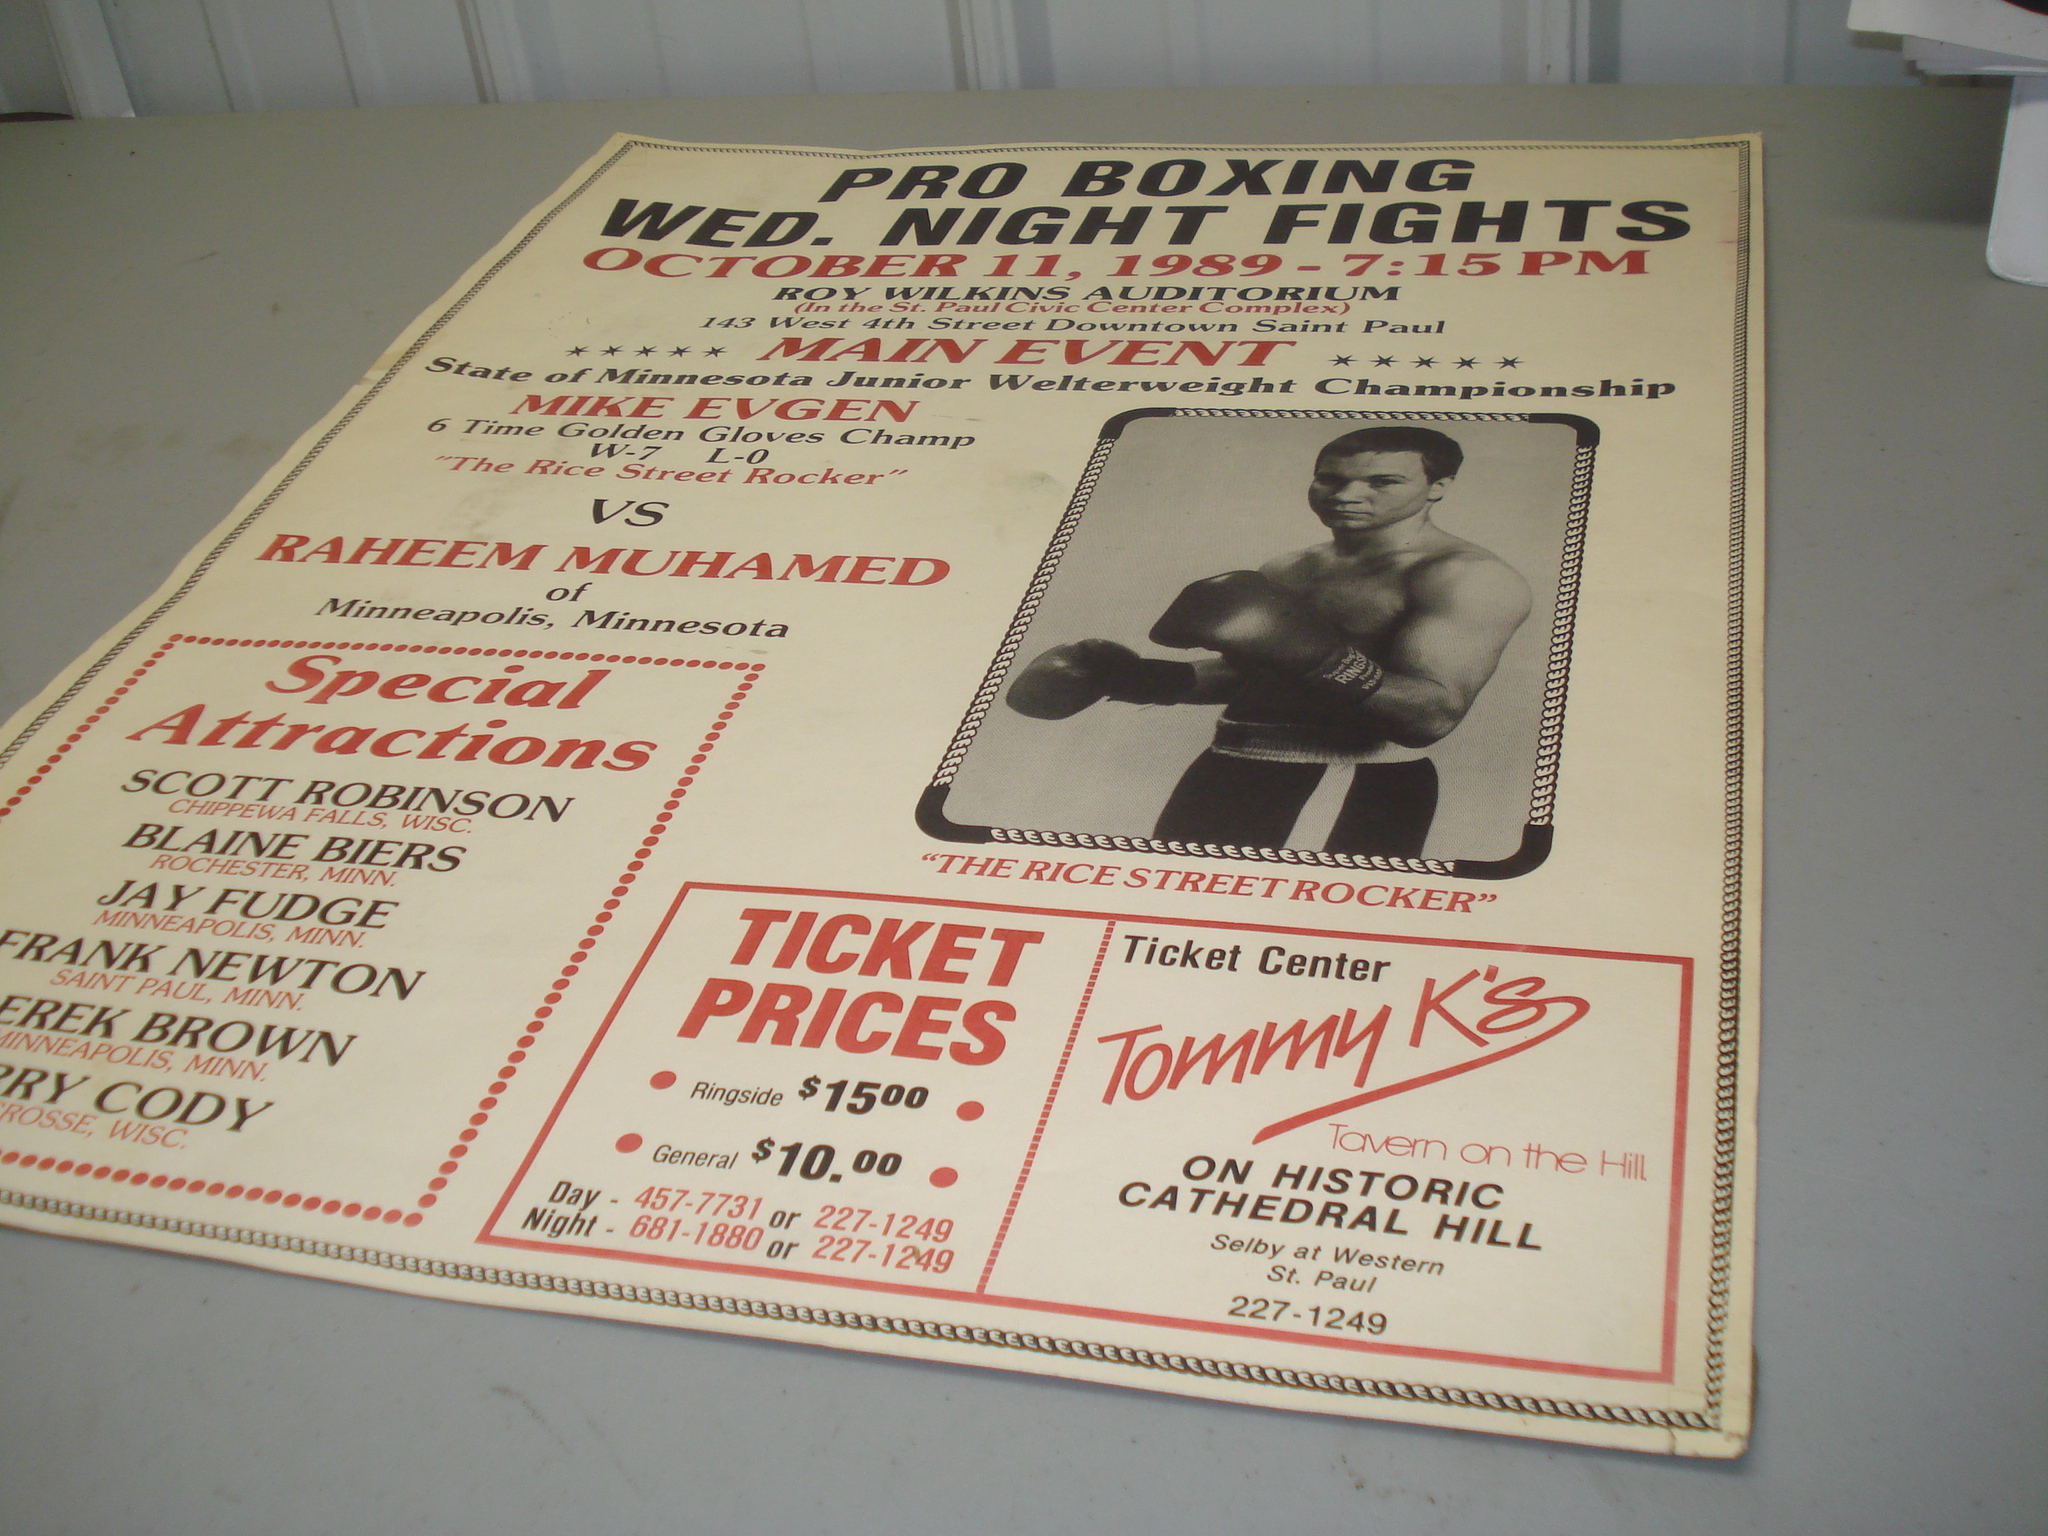 PRO BOXING
WED. NIGHT FIGHTS
OCTOBER 11, 1989 - 7:15 PM
ROY WILKINS AUDITORIUM
(In the St. Paul Civic Center Complex)
143 West 4th Street Downtown Saint Paul
***** MAIN EVENT *****
State of Minnesota Junior Welterweight Championship
MIKE EVGEN
6 Time Golden Gloves Champ
W-7 L-0
"The Rice Street Rocker"
VS
RAHEEM MUHAMED
of
Minneapolis, Minnesota
RINGS
"THE RICE STREET ROCKER"
Special
Attractions
SCOTT ROBINSON
CHIPPEWA FALLS, WISC.
BLAINE BIERS
ROCHESTER, MINN.
JAY FUDGE
MINNEAPOLIS, MINN.
FRANK NEWTON
SAINT PAUL, MINN.
EREK BROWN
MINNEAPOLIS, MINN.
RRY CODY
CROSSE, WISC.
TICKET
PRICES
Ringside $1500
General $10.00
Day - 457-7731 or 227-1249
Night - 681-1880 or 227-1249
Ticket Center
Tommy K's
Tavern on the Hill
ON HISTORIC
CATHEDRAL HILL
Selby at Western
St. Paul
227-1249